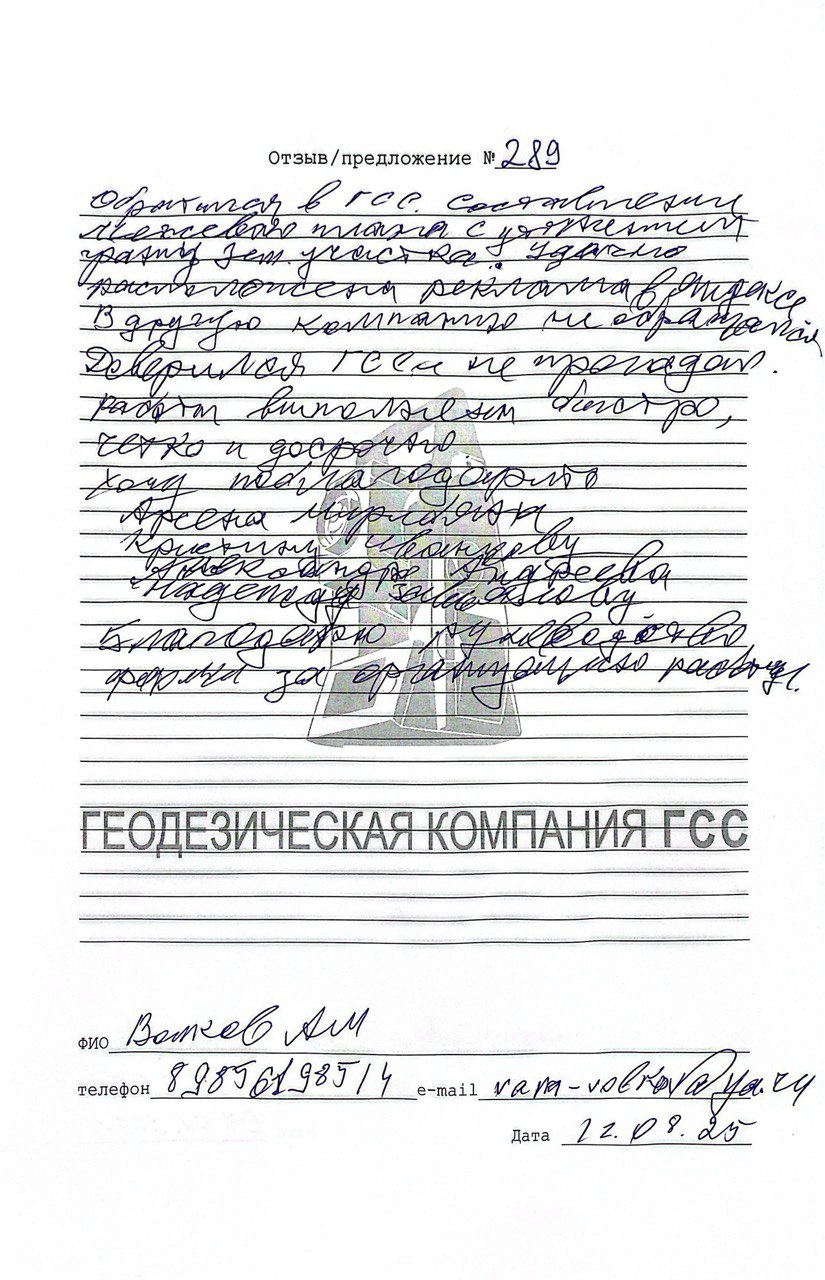 Отзыв/предложение № 289
Обратился в ГСС. составлении
межевого плана с уточнением
границ зем. участка. Удачно
расположена реклама в Яндексе
В другую компанию не обращался
Доверился ГСС и не прогадал.
Работы выполнены быстро,
четко и досрочно
Хочу поблагодарить
Арсена
Кристину Иванцову
Александра Андреева
Надежду
Благодарю руководство
фирмы за организацию работы.
ГЕОДЕЗИЧЕСКАЯ КОМПАНИЯ ГСС
ФИО Волков АМ
телефон 89856198514 e-mail
Дата 22.08.25